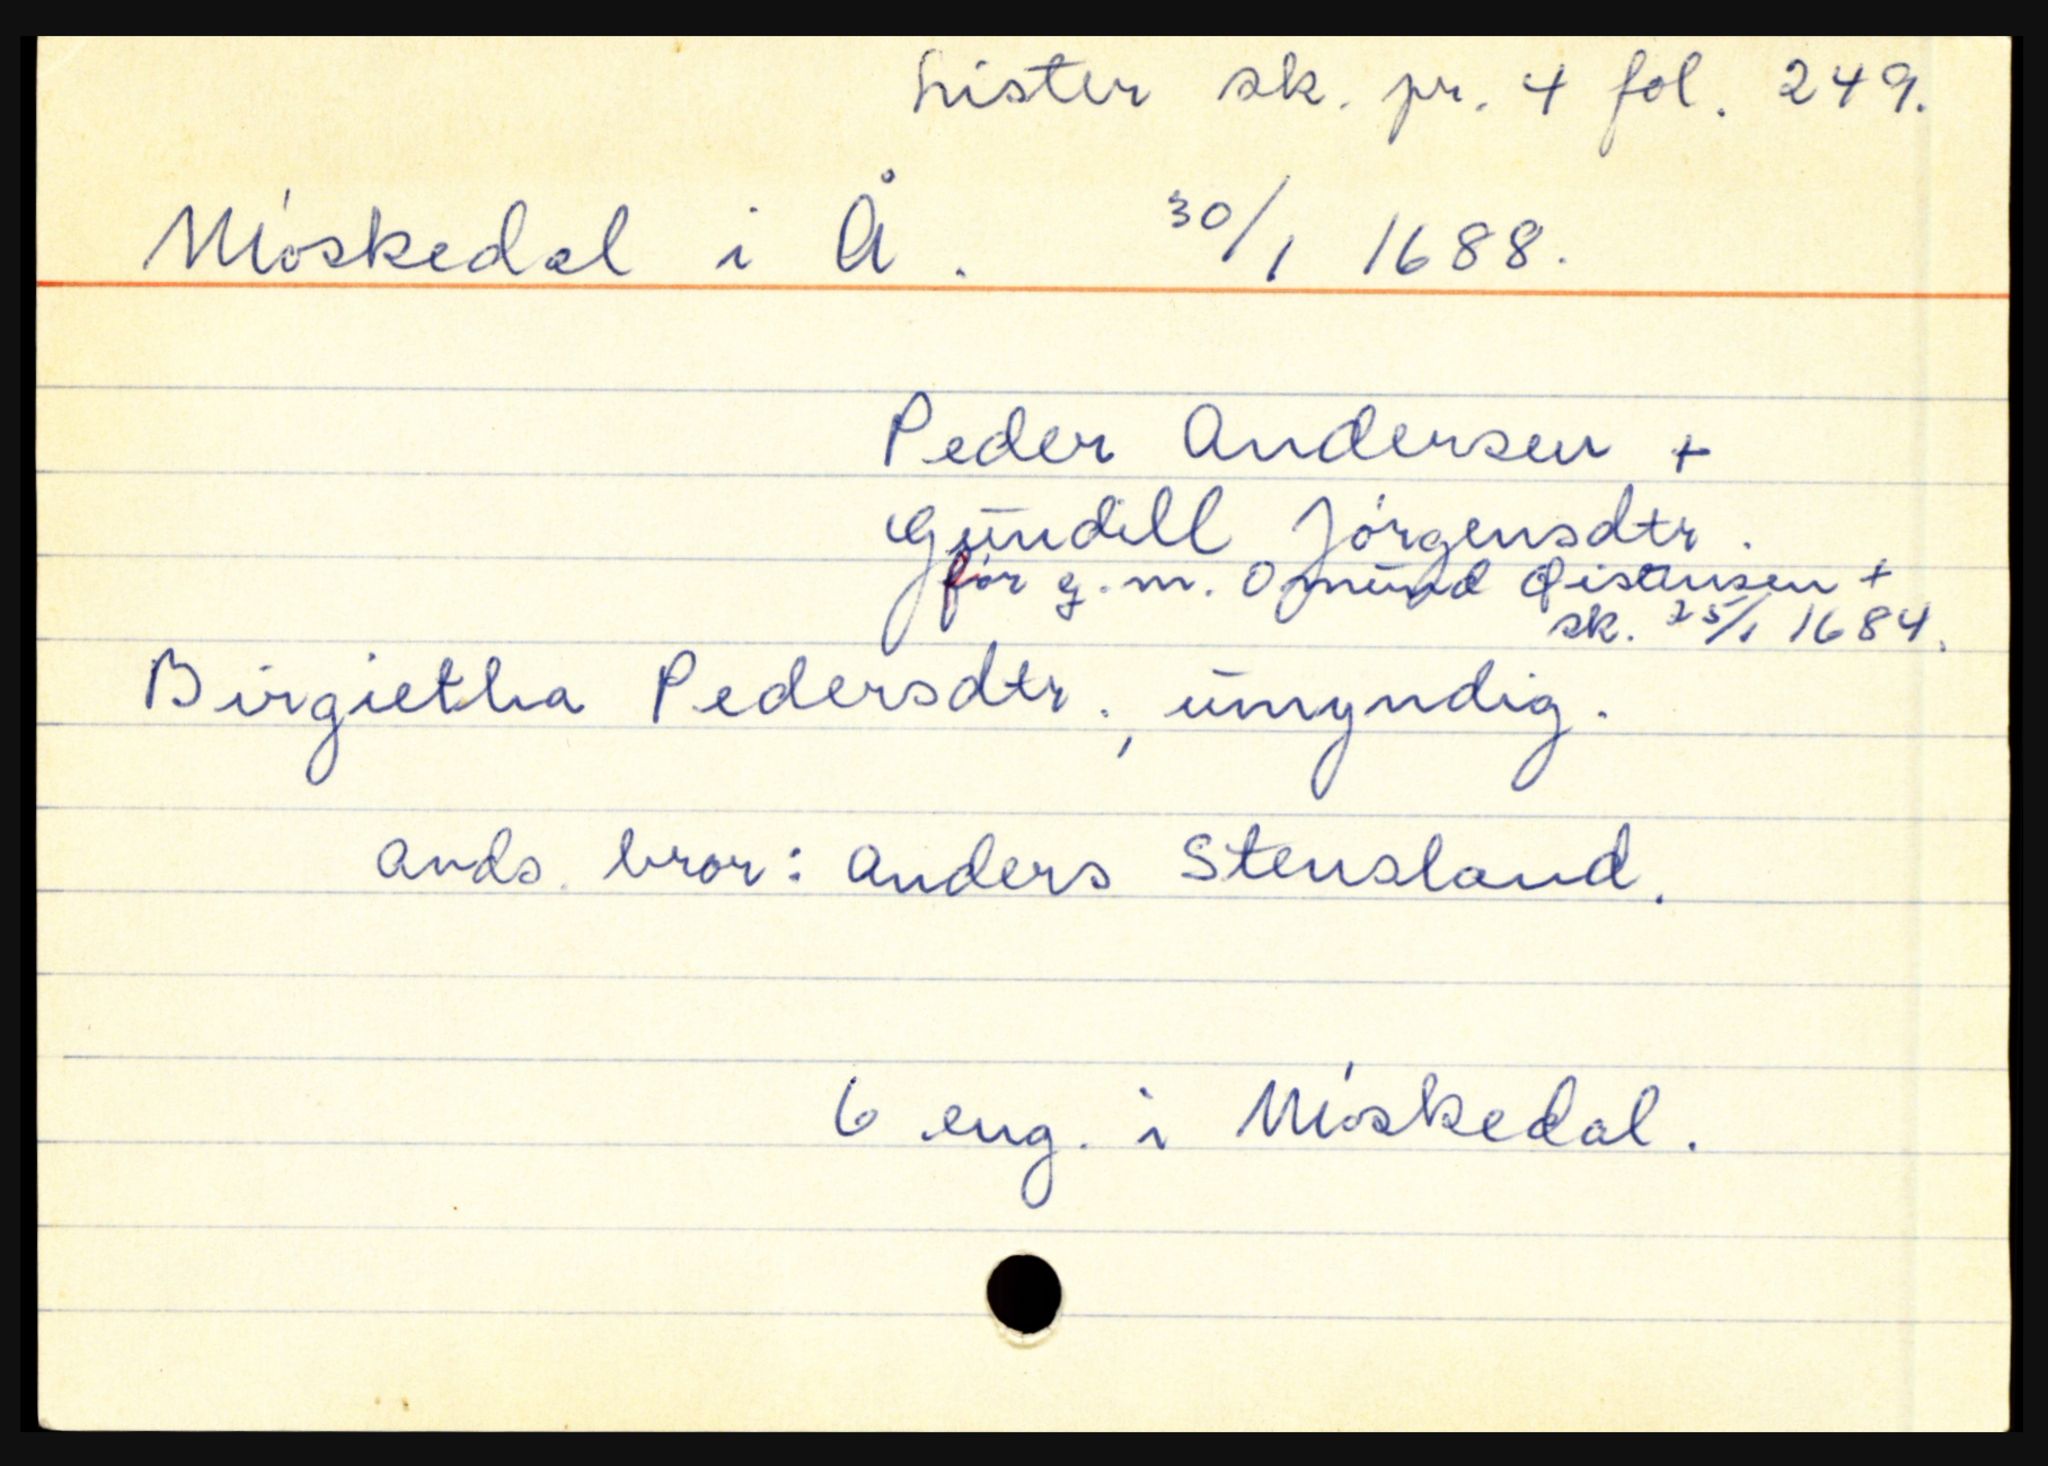 Lister sk. pr. 4 fol. 249.
Móskedal i Å. 30/1 1688.
Peder Andersen +
Gundill Jórgensdtr.
før g.m. Omund +
sk. 25/1 1684.
Birgietha Pedersdtr., umyndig.
avds. bror: Anders Stensland.
6 eng. i Móskedal.